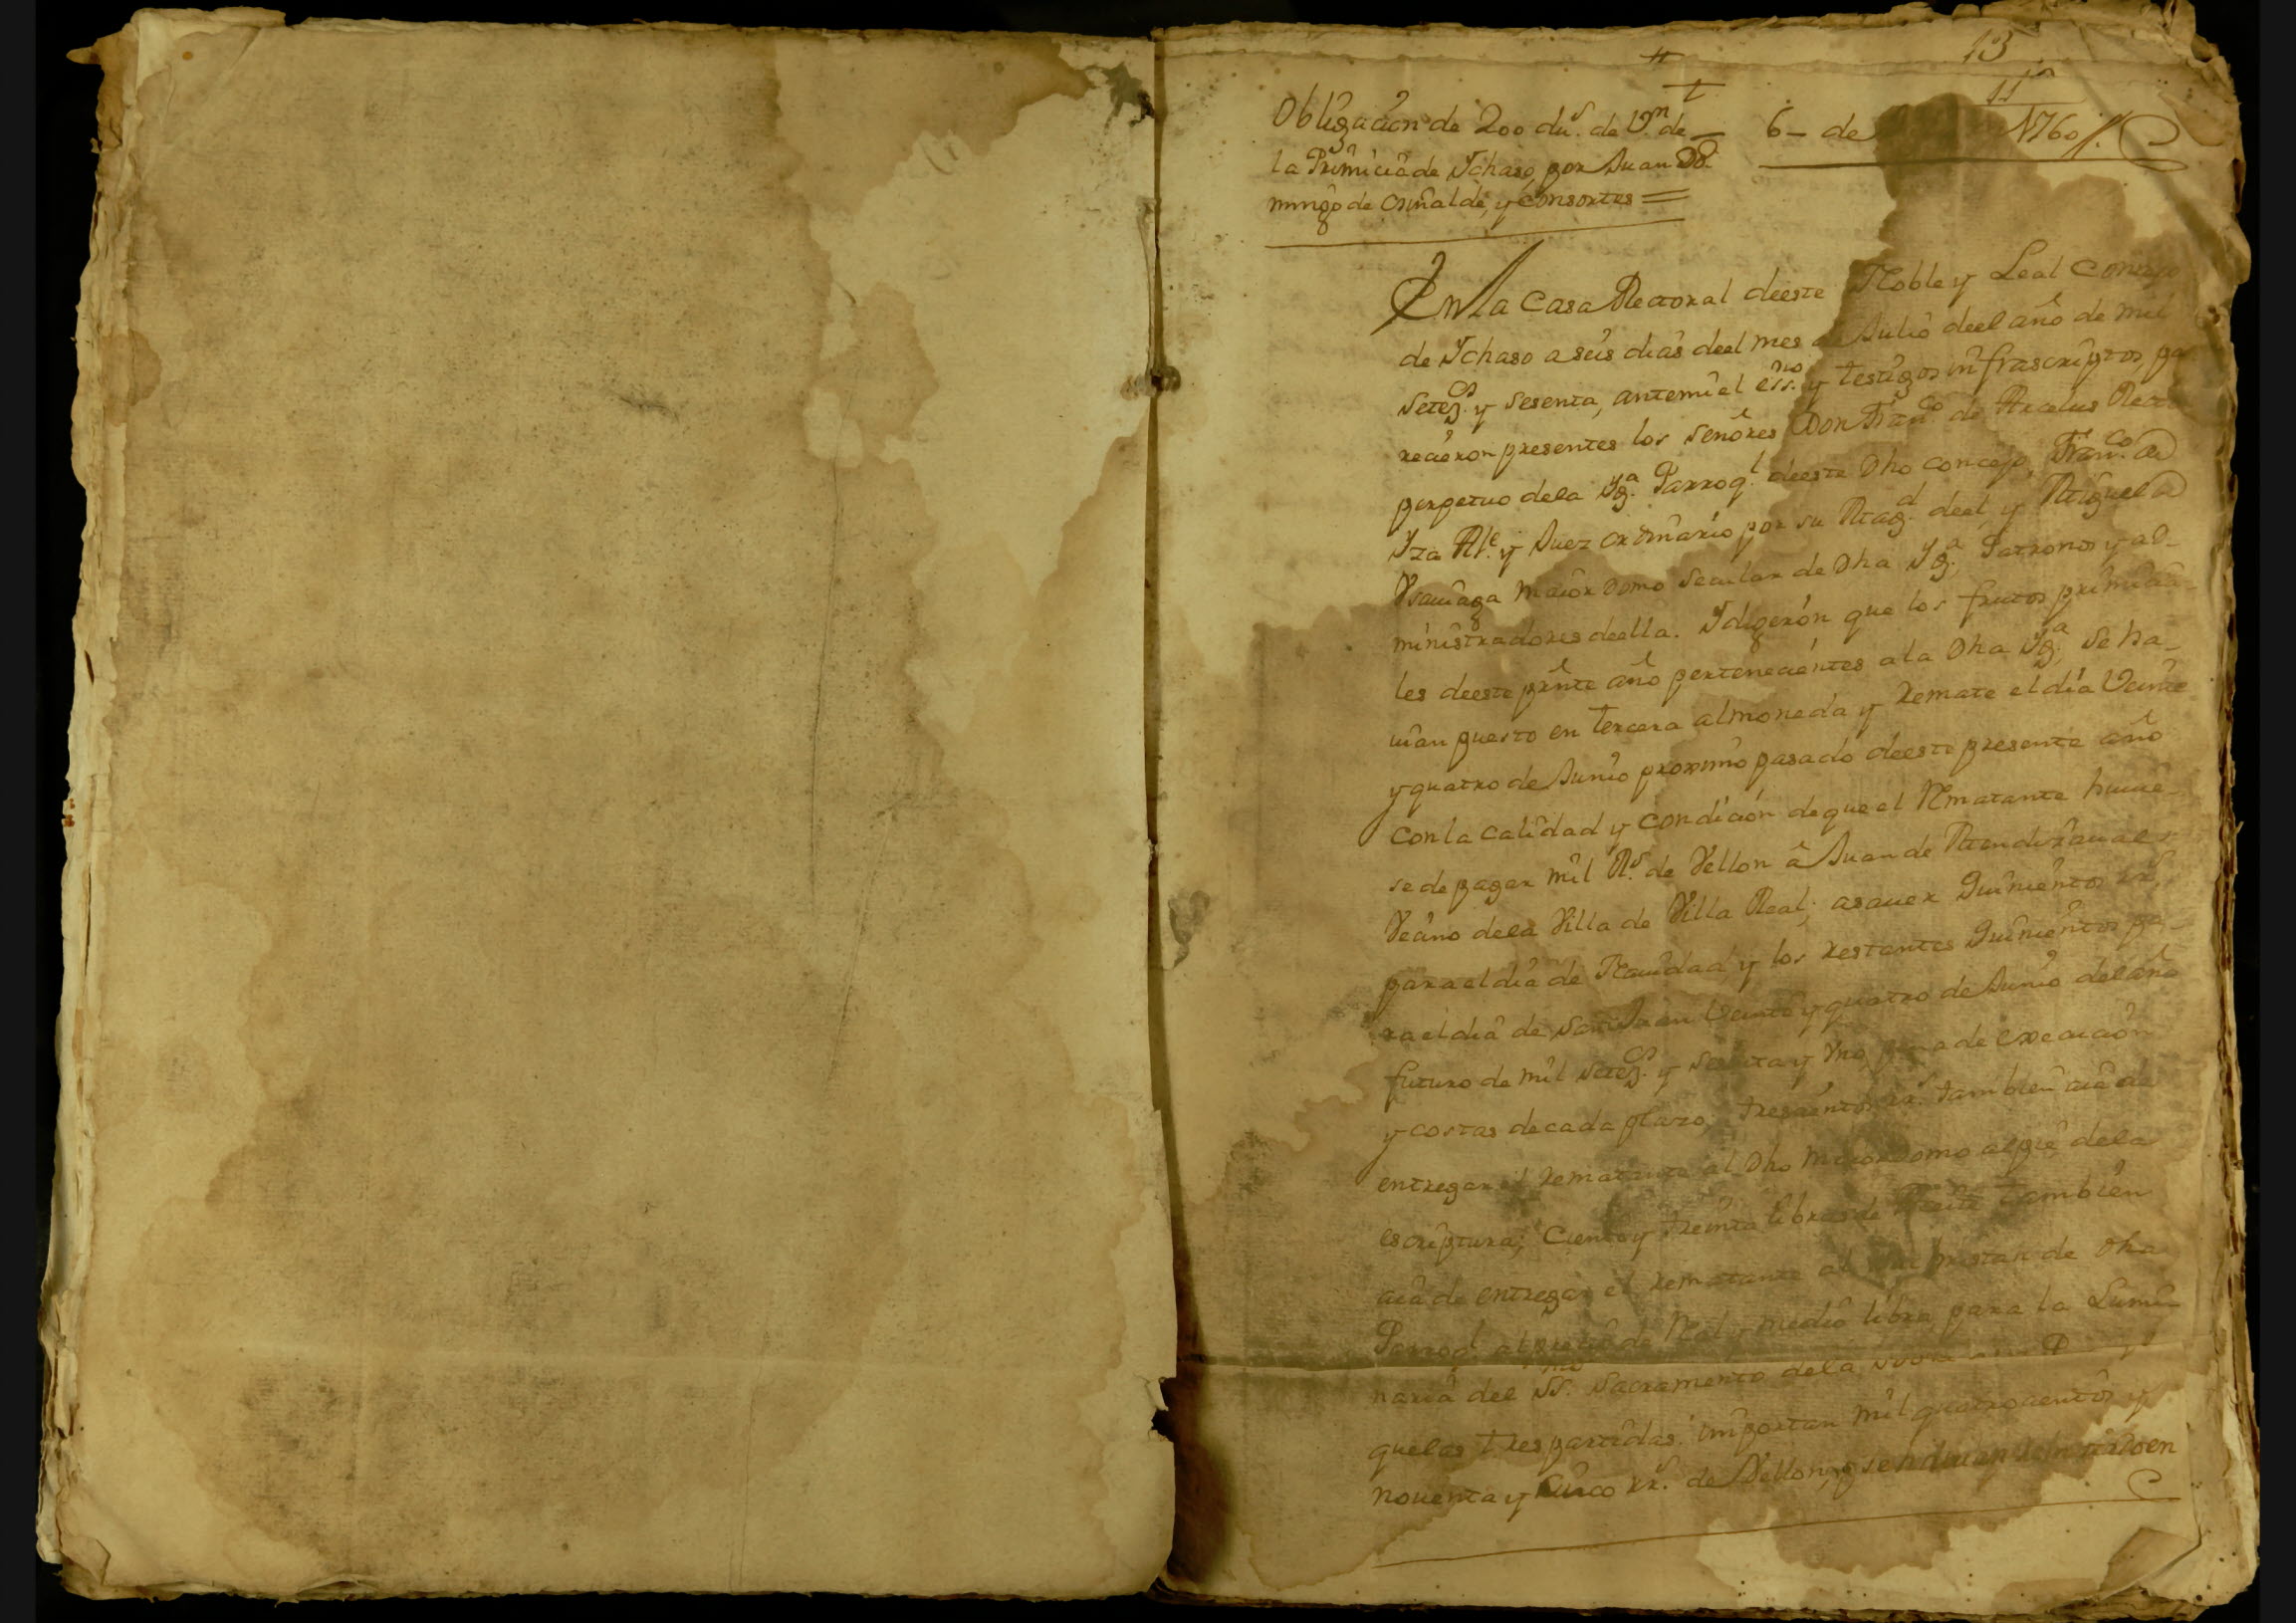 13
11
Obligacion de 200 du.s de V.n de
la Primicia de Ychaso, por Juan Do-
mingo de Oruñalde, y consortes =
6 - de 1760
En la Casa Rectoral deeste Noble y Leal Concejo
de Ychaso a seis dias deel mes de Julio deel año de mil
setez.s y sesenta, antemi el ess.no y testigos infrascriptos, pa
recieron presentes los señores Don Fran.co de Arcelus Rector
perpetuo dela Yg.a Parroq.l deeste dho concejo, Fran.co de
Yza Al.e y Juez ordinario por su Mag.d deel, y Miguel de
Vsauiaga maiordomo secular de dha Yg.a, Patronos y ad-
ministradores deella. Y digeron que los frutos primicia-
les deeste prnte año pertenecientes a la dha Yg.a, se ha-
uian puesto en tercera almoneda y remate el dia veinte
y quatro de Junio proximo pasado deeste presente año
con la calidad y condicion de que el Rematante huuie-
se de pagar mil R.s de Vellon â Juan de Mendizaual
Vecino dela Villa de Villa Real; asauer Quinientos rr.s
para el dia de Nauidad, y los restantes Quinientos pa-
ra el dia de San Juan veinte y quatro de Junio del año
futuro de mil setez.s y sesenta y vno, pena de execucion
y costas de cada plazo, trescientos rr.s tambien auia de
entregar el rematante al dho maiordomo al pie dela
escriptura; Ciento y treinta libras de Aceite tambien
auia de entregar el rematante al de dha
Parroq.l al precio de Real y medio libra, para la Lumi-
naria del SS.mo Sacramento dela
que las tres partidas importan mil quatrocientos y
nouenta y cinco rr.s de Vellon, y se en